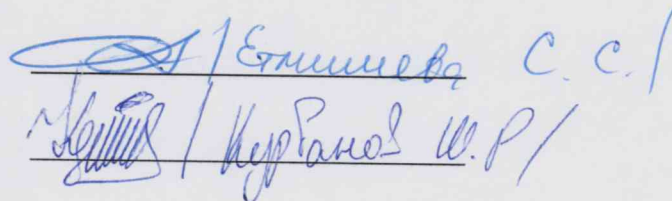 /Етмишева С. С./
/Курбанов Ш.Р/